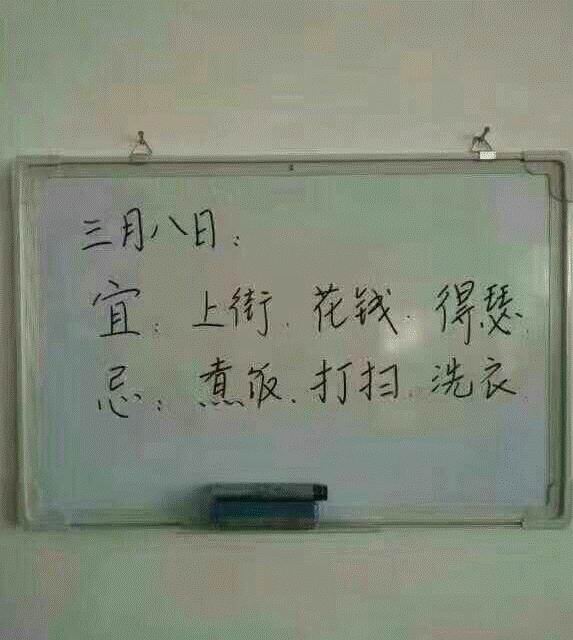 三月八日：
宜：上街、花钱、得瑟、
忌：煮饭、打扫、洗衣